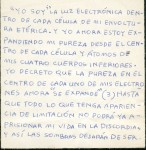 "YO SOY" LA LUZ ELECTRÓNICA DEN-
TRO DE CADA CÉLULA DE MI ENVOLTU-
RA ETÉRICA. Y YO AHORA ESTOY EX-
PANDIENDO MI PUREZA DESDE EL CEN-
TRO DE CADA CÉLULA Y ÁTOMOS DE
MIS CUATRO CUERPOS INFERIORES.
YO DECRETO QUE LA PUREZA EN EL
CENTRO DE CADA UNO DE MIS ELECTRO-
NES AHORA SE EXPANDE (3) HASTA
QUE TODO LO QUE TENGA APARIEN-
CIA DE LIMITACIÓN NO PODRÁ YA A-
PRISIONAR MI VIDA EN LA DISCORDIA.
Y ASÍ LAS SOMBRAS DEJARÁN DE SER.